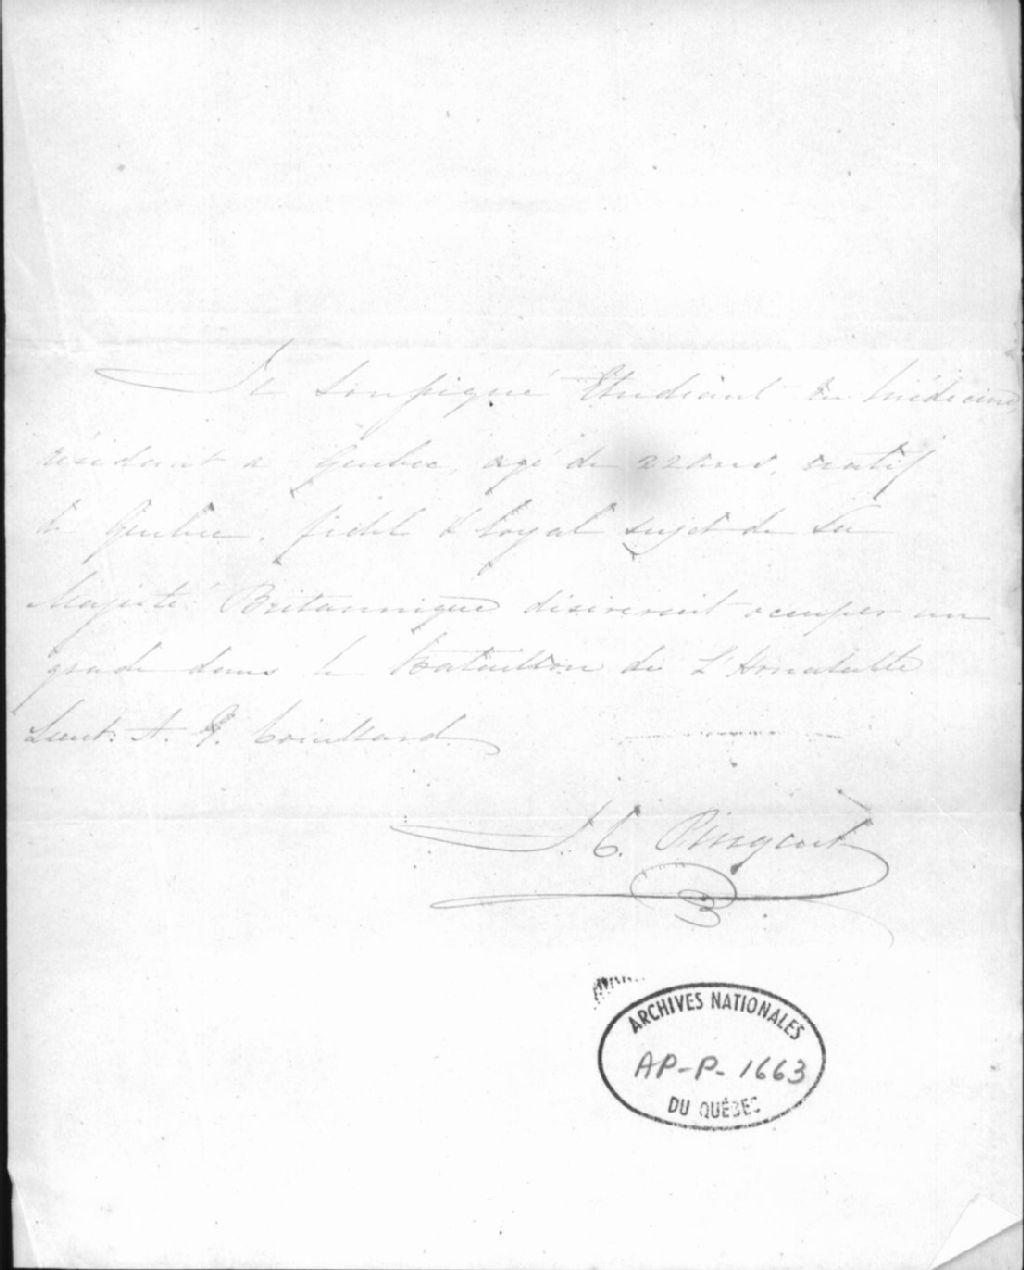 Je Soussigné Etudiant en Médecine
résidant a Quebec, agé de 22 ans, natif
de Quebec, fidel & loyal sujet de Sa
Majesté Britannique désirerait occuper un
grade dans le Bataillon de L'Honorable
Lieut. A. G. Couillard
J. C.
ARCHIVES NATIONALES
AP-P-1663
DU QUÉBEC